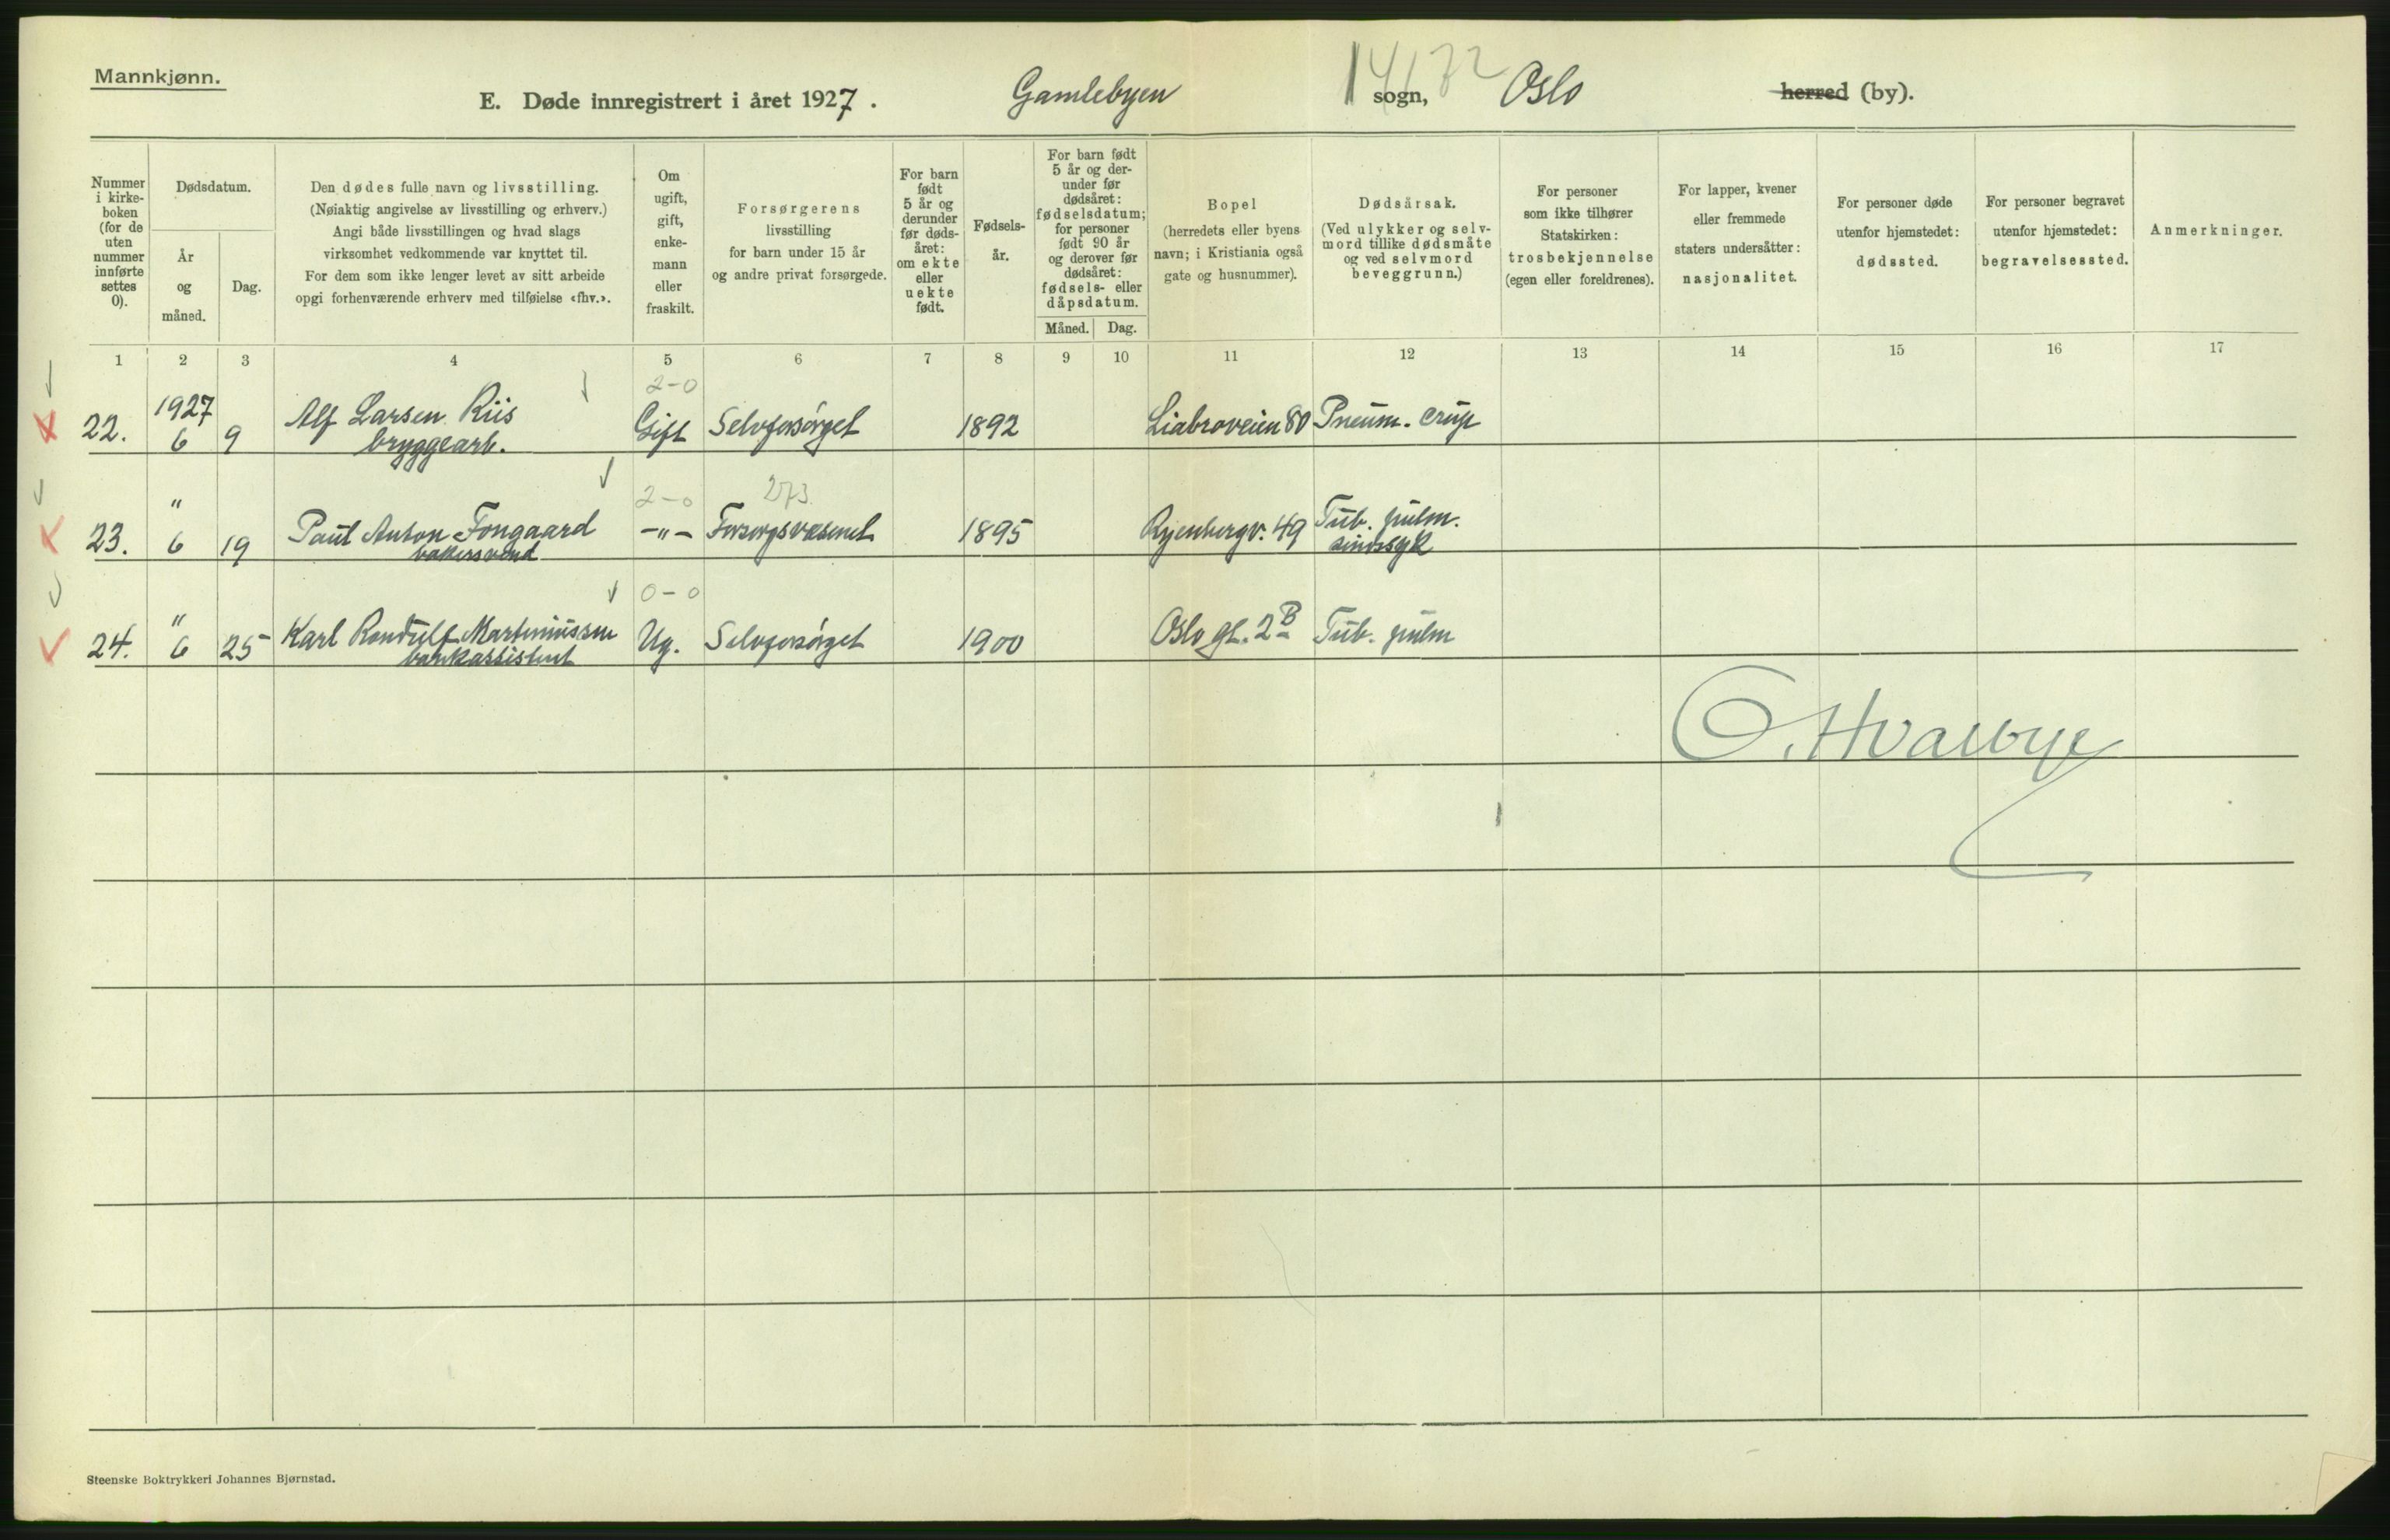 Mannkjønn.
E. Døde innregistrert i året 1927.
Gamlebyen sogn, Oslo herred (by).
14172
Nummer
i kirke-
boken
(for de
uten
nummer
innførte
settes
0).
Dødsdatum.
År
og
måned.
Dag.
Den dødes fulle navn og livsstilling.
(Nøiaktig angivelse av livsstilling og erhverv.)
Angi både livsstillingen og hvad slags
virksomhet vedkommende var knyttet til.
For dem som ikke lenger levet av sitt arbeide
opgi forhenværende erhverv med tilføielse «fhv.».
Om
ugift,
gift,
enke-
mann
eller
fraskilt.
Forsørgerens
livsstilling
for barn under 15 år
og andre privat forsørgede.
For barn
født
5 år og
derunder
før døds-
året:
om ekte
eller
uekte
født.
Fødsels-
år.
For barn født
5 år og der-
under før
dødsåret:
fødselsdatum;
for personer
født 90 år
og derover før
dødsåret:
fødsels- eller
dåpsdatum.
Måned. Dag.
Bopel
(herredets eller byens
navn; i Kristiania også
gate og husnummer).
Dødsårsak.
(Ved ulykker og selv-
mord tillike dødsmåte
og ved selvmord
beveggrunn.)
For personer
som ikke tilhører
Statskirken:
trosbekjennelse
(egen eller foreldrenes).
For lapper, kvener
eller fremmede
staters undersåtter:
nasjonalitet.
For personer døde
utenfor hjemstedet:
dødssted.
For personer begravet
utenfor hjemstedet:
begravelsessted.
Anmerkninger.
1 2 3 4 5 6 7 8 9 10 11 12 13 14 15 16 17
2-0
22. 1927 6 9 Alf Larsen Riis Gift Selvforsørget 1892 Liabroveien 80 Pneum. crup
bryggearb.
2-0 273
23. " 6 19 Paul Anton Fongaard -"- Forsorgsvæsenet 1895 Ryenbergv. 49 Tub. pulm.
bakersvend sindssyk
0-0
24. " 6 25 Karl Randulf Martiniussen Ug. Selvforsørget 1900 Oslo gt. 2B Tub. pulm
bankassistent
O. Hvalbye
Steenske Boktrykkeri Johannes Bjørnstad.